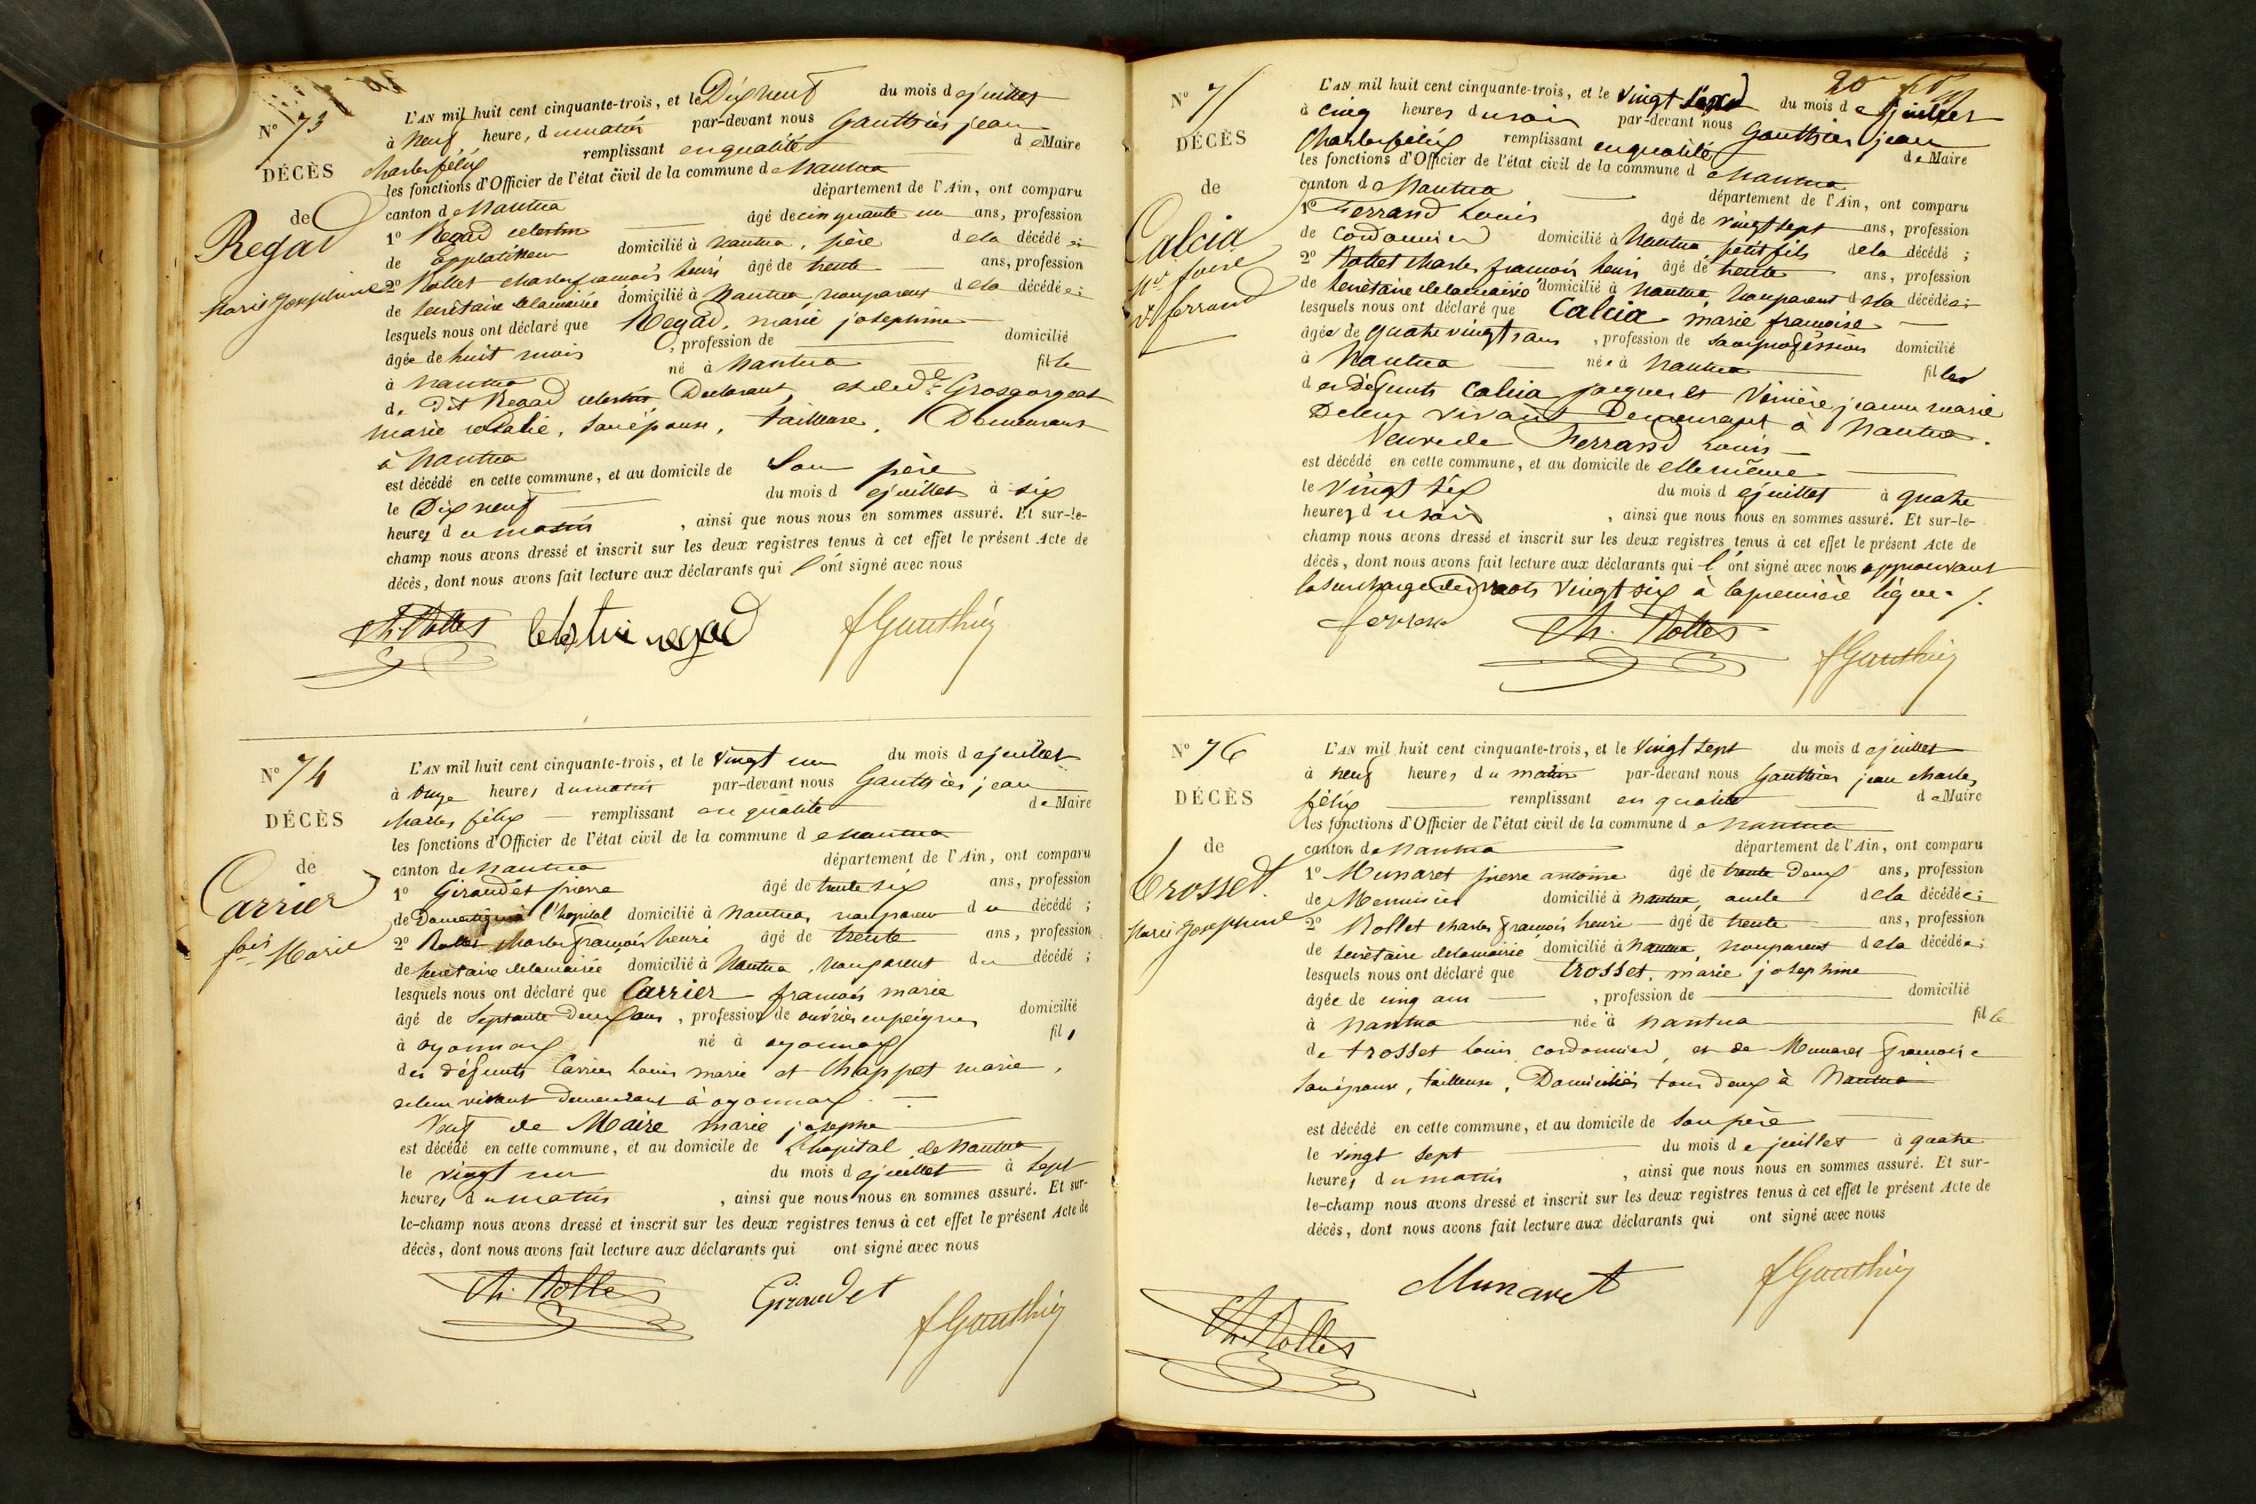 N° 73
DÉCÈS
de
Regad
Marie Josephine
L'AN mil huit cent cinquante-trois, et le Dix neuf du mois de juillet
à neuf heure, du matin par-devant nous Gauthier jean
charles félix remplissant en qualité de Maire
les fonctions d'Officier de l'état civil de la commune de Nantua
canton de Nantua département de l'Ain, ont comparu
1° Regad celestin âgé de cinquante un ans, profession
de applatisseur domicilié à nantua, père de la décédée;
2° Rollet charles françois henri âgé de trente ans, profession
de secrétaire de la mairie domicilié à nantua, non parent de la décédée;
lesquels nous ont déclaré que Regad, marie josephine
âgée de huit mois, profession de domicilié
à nantua né à nantua fille
de dit Regad celestin Declarant, et de de Grosgorgeat
marie rosalie, son épouse, tailleuse, Demeurant
à Nantua
est décédé en cette commune, et au domicile de Son père
le Dix neuf du mois de juillet à six
heures du matin, ainsi que nous nous en sommes assuré. Et sur-le-
champ nous avons dressé et inscrit sur les deux registres tenus à cet effet le présent Acte de
décès, dont nous avons fait lecture aux déclarants qui l'ont signé avec nous
Ch. Rollet celestin regad f Gauthier
N° 74
DÉCÈS
de
Carrier
fois Marie
L'AN mil huit cent cinquante-trois, et le vingt un du mois de juillet
à onze heures du matin par-devant nous Gauthier jean
charles félix remplissant en qualité de Maire
les fonctions d'Officier de l'état civil de la commune de nantua
canton de Nantua département de l'Ain, ont comparu
1° Giraudet pierre âgé de trente six ans, profession
de Domestique à l'hopital domicilié à nantua, non parent du décédé;
2° Rollet charles françois henri âgé de trente ans, profession
de secrétaire de la mairie domicilié à Nantua, non parent du décédé;
lesquels nous ont déclaré que Carrier françois marie
âgé de septante deux ans, profession de ouvrier en peignes domicilié
à oyonnax né à oyonnax fils
des défunts Carrier Louis marie et Chappet marie,
de leur vivant demeurant à oyonnax.
Veuf de Maire marie josephe
est décédé en cette commune, et au domicile de L'hopital de Nantua
le vingt un du mois de juillet à sept
heures du matin, ainsi que nous nous en sommes assuré. Et sur-
le-champ nous avons dressé et inscrit sur les deux registres tenus à cet effet le présent Acte de
décès, dont nous avons fait lecture aux déclarants qui ont signé avec nous
Ch. Rollet Giraudet f Gauthier
N° 75
DÉCÈS
de
Calcia
ve ferrand
L'AN mil huit cent cinquante-trois, et le vingt six du mois de juillet
à cinq heures du soir par-devant nous Gauthier jean
Charles félix remplissant en qualité de Maire
les fonctions d'Officier de l'état civil de la commune de Nantua
canton de Nantua département de l'Ain, ont comparu
1° Ferrand Louis âgé de vingt sept ans, profession
de cordonnier domicilié à Nantua petit fils de la décédé;
2° Rollet charles françois henri âgé de trente ans, profession
de secrétaire de la mairie domicilié à nantua, non parent de la décédée;
lesquels nous ont déclaré que Calcia marie françoise
âgée de quatre vingt ans, profession de sans profession domicilié
à Nantua née à nantua fille
des défunts Calcia jacques et Vernière jeanne marie
De leur vivant Demeurant à Nantua.
Veuve de Ferrand Louis
est décédé en cette commune, et au domicile de elle même
le vingt six du mois de juillet à quatre
heures du soir, ainsi que nous nous en sommes assuré. Et sur-le-
champ nous avons dressé et inscrit sur les deux registres tenus à cet effet le présent Acte de
décès, dont nous avons fait lecture aux déclarants qui l'ont signé avec nous approuvant
la surcharge des mots vingt six à la première ligne.
ferrand Ch. Rollet f Gauthier
N° 76
DÉCÈS
de
Trosset
Marie Josephine
L'AN mil huit cent cinquante-trois, et le vingt sept du mois de juillet
à neuf heures du matin par-devant nous Gauthier jean charles
félix remplissant en qualité de Maire
les fonctions d'Officier de l'état civil de la commune de nantua
canton de Nantua département de l'Ain, ont comparu
1° Munaret pierre antoine âgé de trente deux ans, profession
de Menuisier domicilié à nantua, oncle de la décédée;
2° Rollet charles françois henri âgé de trente ans, profession
de secrétaire de la mairie domicilié à nantua, non parent de la décédée;
lesquels nous ont déclaré que trosset, marie josephine
âgée de cinq ans, profession de domicilié
à nantua née à nantua fille
de trosset Louis cordonnier, et de Munaret françoise
son épouse, tailleuse, Domiciliés tous deux à Nantua
est décédé en cette commune, et au domicile de son père
le vingt sept du mois de juillet à quatre
heures du matin, ainsi que nous nous en sommes assuré. Et sur-
le-champ nous avons dressé et inscrit sur les deux registres tenus à cet effet le présent Acte de
décès, dont nous avons fait lecture aux déclarants qui ont signé avec nous
Munaret f Gauthier
Ch. Rollet